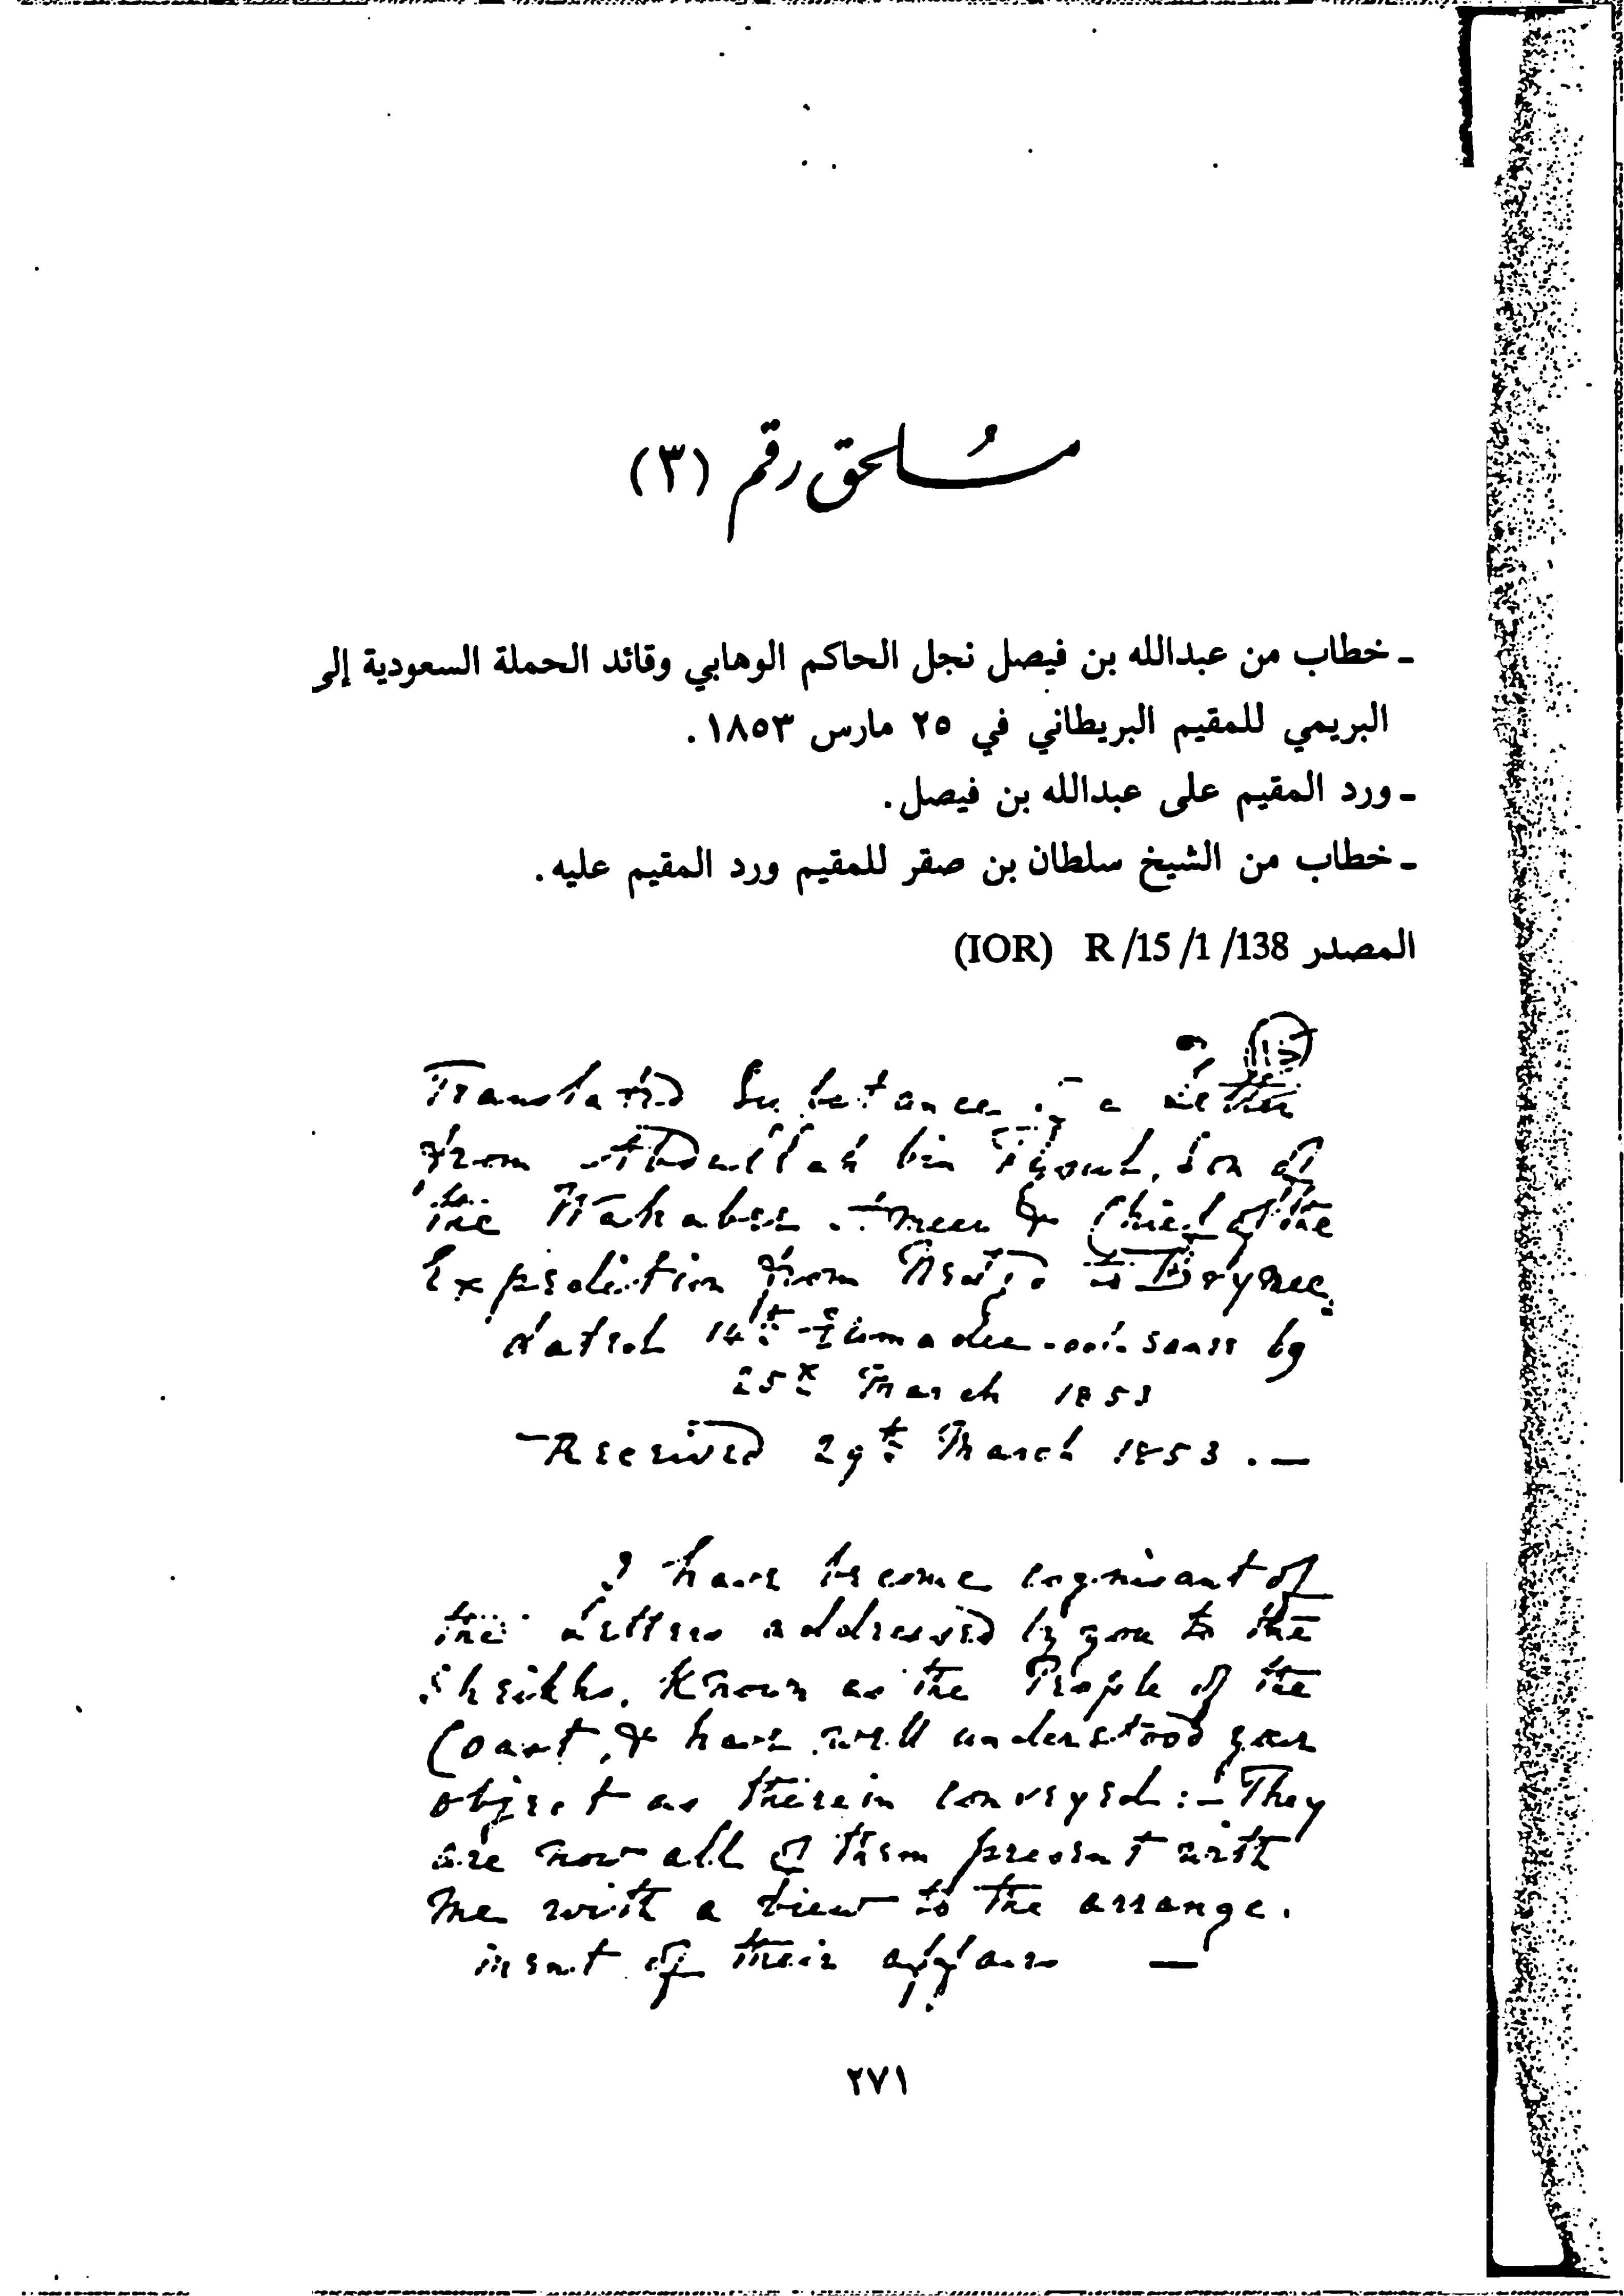 مُلحق رقم (٣)
ـ خطاب من عبدالله بن فيصل نجل الحاكم الوهابي وقائد الحملة السعودية إلى
البريمي للمقيم البريطاني في ٢٥ مارس ١٨٥٣.
ـ ورد المقيم على عبدالله بن فيصل.
ـ خطاب من الشيخ سلطان بن صقر للمقيم ورد المقيم عليه.
المصدر R /15 /1 /138 (IOR)
Translated Substance of a Letter
from Abdullah bin Fysul, Son of
the Wahabee Ameer & Chief of the
Expedition from Nedjd to Brymee
dated 14th by
25th March 1853
Received 29th March 1853. —
I have become cognisant of
the Letters addressed by you to the
Sheikhs, Known as the People of the
Coast, & have well understood your
object as therein conveyed: — They
are now all of them present with
me with a view to the arrange-
ment of their affairs —
٢٧١